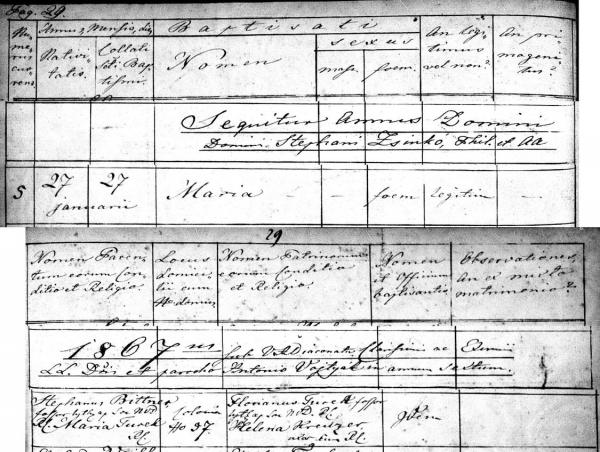 Pag. 29.
Numerus currens
Annus, Mensis, dies
Nativitatis.
Collati Scti Baptismi.
Baptisati
Nomen
sexus
masc.
foem.
An legitimus vel non?
An primogenitus?
Sequitur Annus Domini
Domini Stephani Zsinkó, Phil. et AA
5
27
27
januarii
Maria
-
-
foem
legitim
-
29
Nomen Parentum eorum Conditio et Religio.
Locus domicilii cum No domus
Nomen Patrinorum eorum Conditio et Religio.
Nomen et Officium baptisantis
Observationes, An ex mixto matrimonio?
1867 us
sub V. A Diaconatu Clarissimi ac Eximii
LL. Dris et parocho Antonio Vojtyák in annum
Stephanus Bittner
R.C. Maria Turek
R.C.
Colonia
No 37
Florianus Turek fossor
R.C.
Helena Kreutzer
R.C.
idem